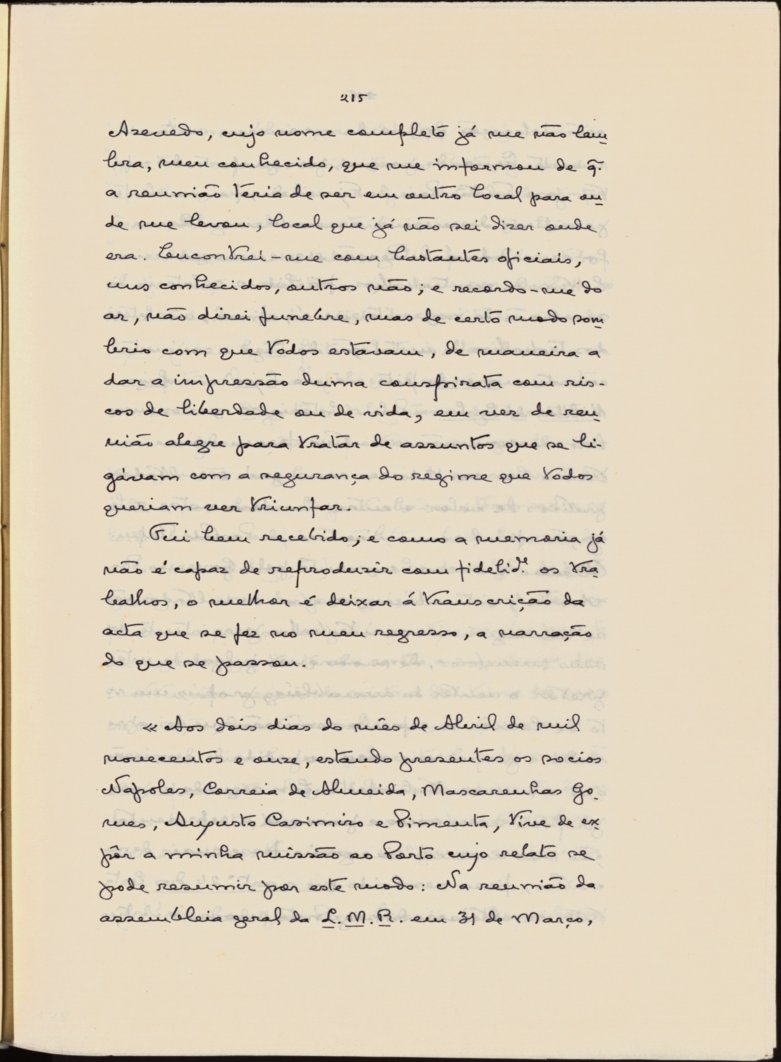 215
Azevedo, cujo nome completo já me não lem
bra, meu conhecido, que me informou de q.
a reunião teria de ser em outro local para on
de me levou, local que já não sei dizer onde
era. Encontrei-me com bastantes oficiais,
uns conhecidos, outros não; e recordo-me do
ar, não direi funebre, mas de certo modo som
brio com que todos estavam, de maneira a
dar a impressão duma conspirata com ris-
cos de liberdade ou de vida, em vez de reu
nião alegre para tratar de assuntos que se li-
gávam com a segurança do regime que todos
queriam ver triunfar.
Fui bem recebido; e como a memoria já
não é capaz de reproduzir com fidelid.e os tra
balhos, o melhor é deixar á transcrição da
acta que se fez no meu regresso, a narração
do que se passou.
« Aos dois dias do mês de Abril de mil
novecentos e onze, estando presentes os socios
Napoles, Correia de Almeida, Mascarenhas Go-
mes, Augusto Casimiro e Pimenta, tive de ex
pôr a minha missão ao Porto cujo relato se
pode resumir por este modo: Na reunião da
assembleia geral da L.M.R. em 31 de Março,